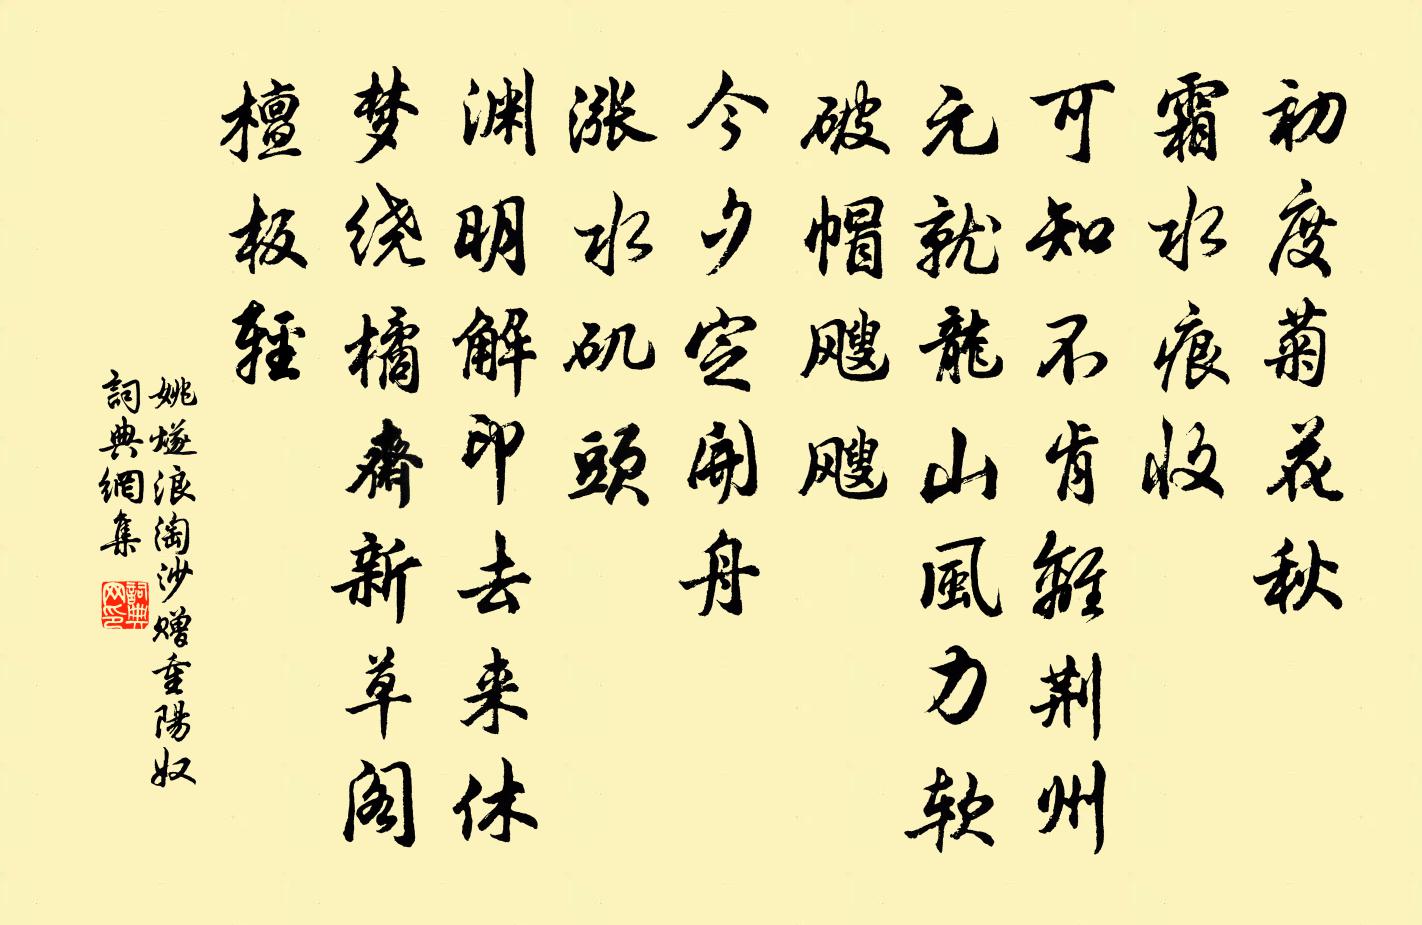 初度菊花秋
霜水痕收
可知不肯離荆州
元就龍山風力软
破帽飕飕
今夕定開舟
漲水矶頭
渊明解印去来休
梦绕橘齋新草阁
檀板輕
姚燧浪淘沙赠重陽奴
詞典網集
詞典
网印